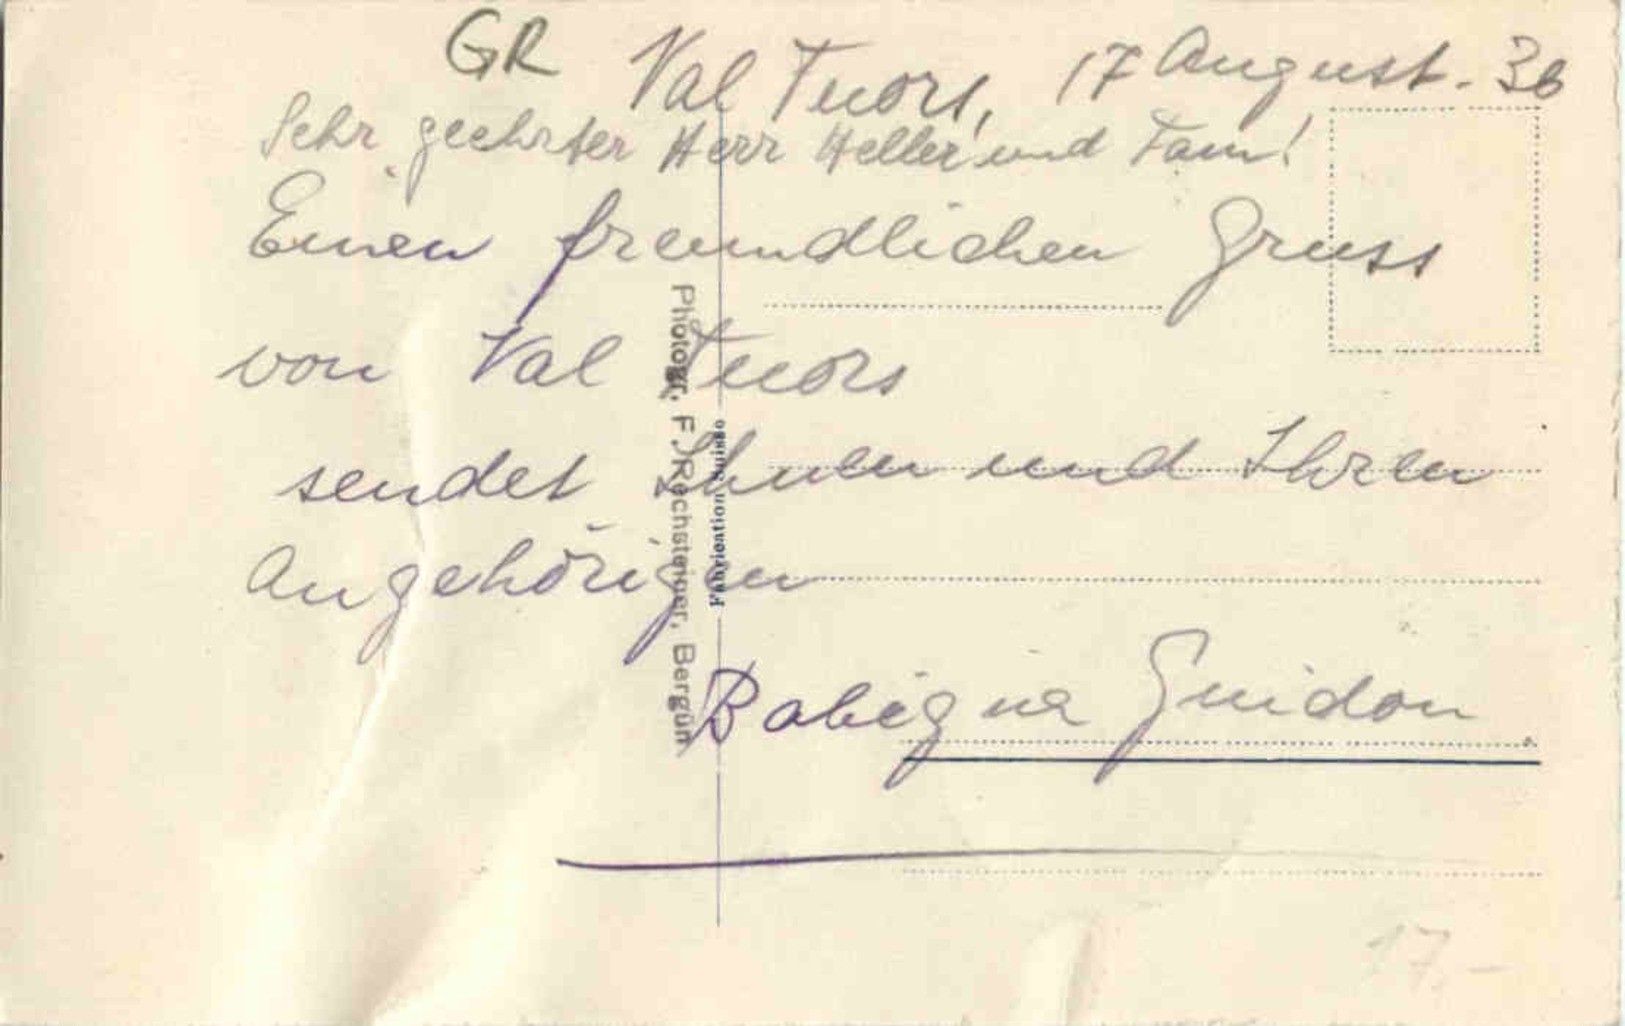 GR
Val Tuors, 17 August. 36
Sehr geehrter Herr Heller und Fam!
Einen freundlichen Gruss
von Val Tuors
sendet Ihnen und Ihren
Angehörigen
Babigna Guidon
Photogr. F. Rechsteiner, Bergün
Fabrication Suisse
17.-